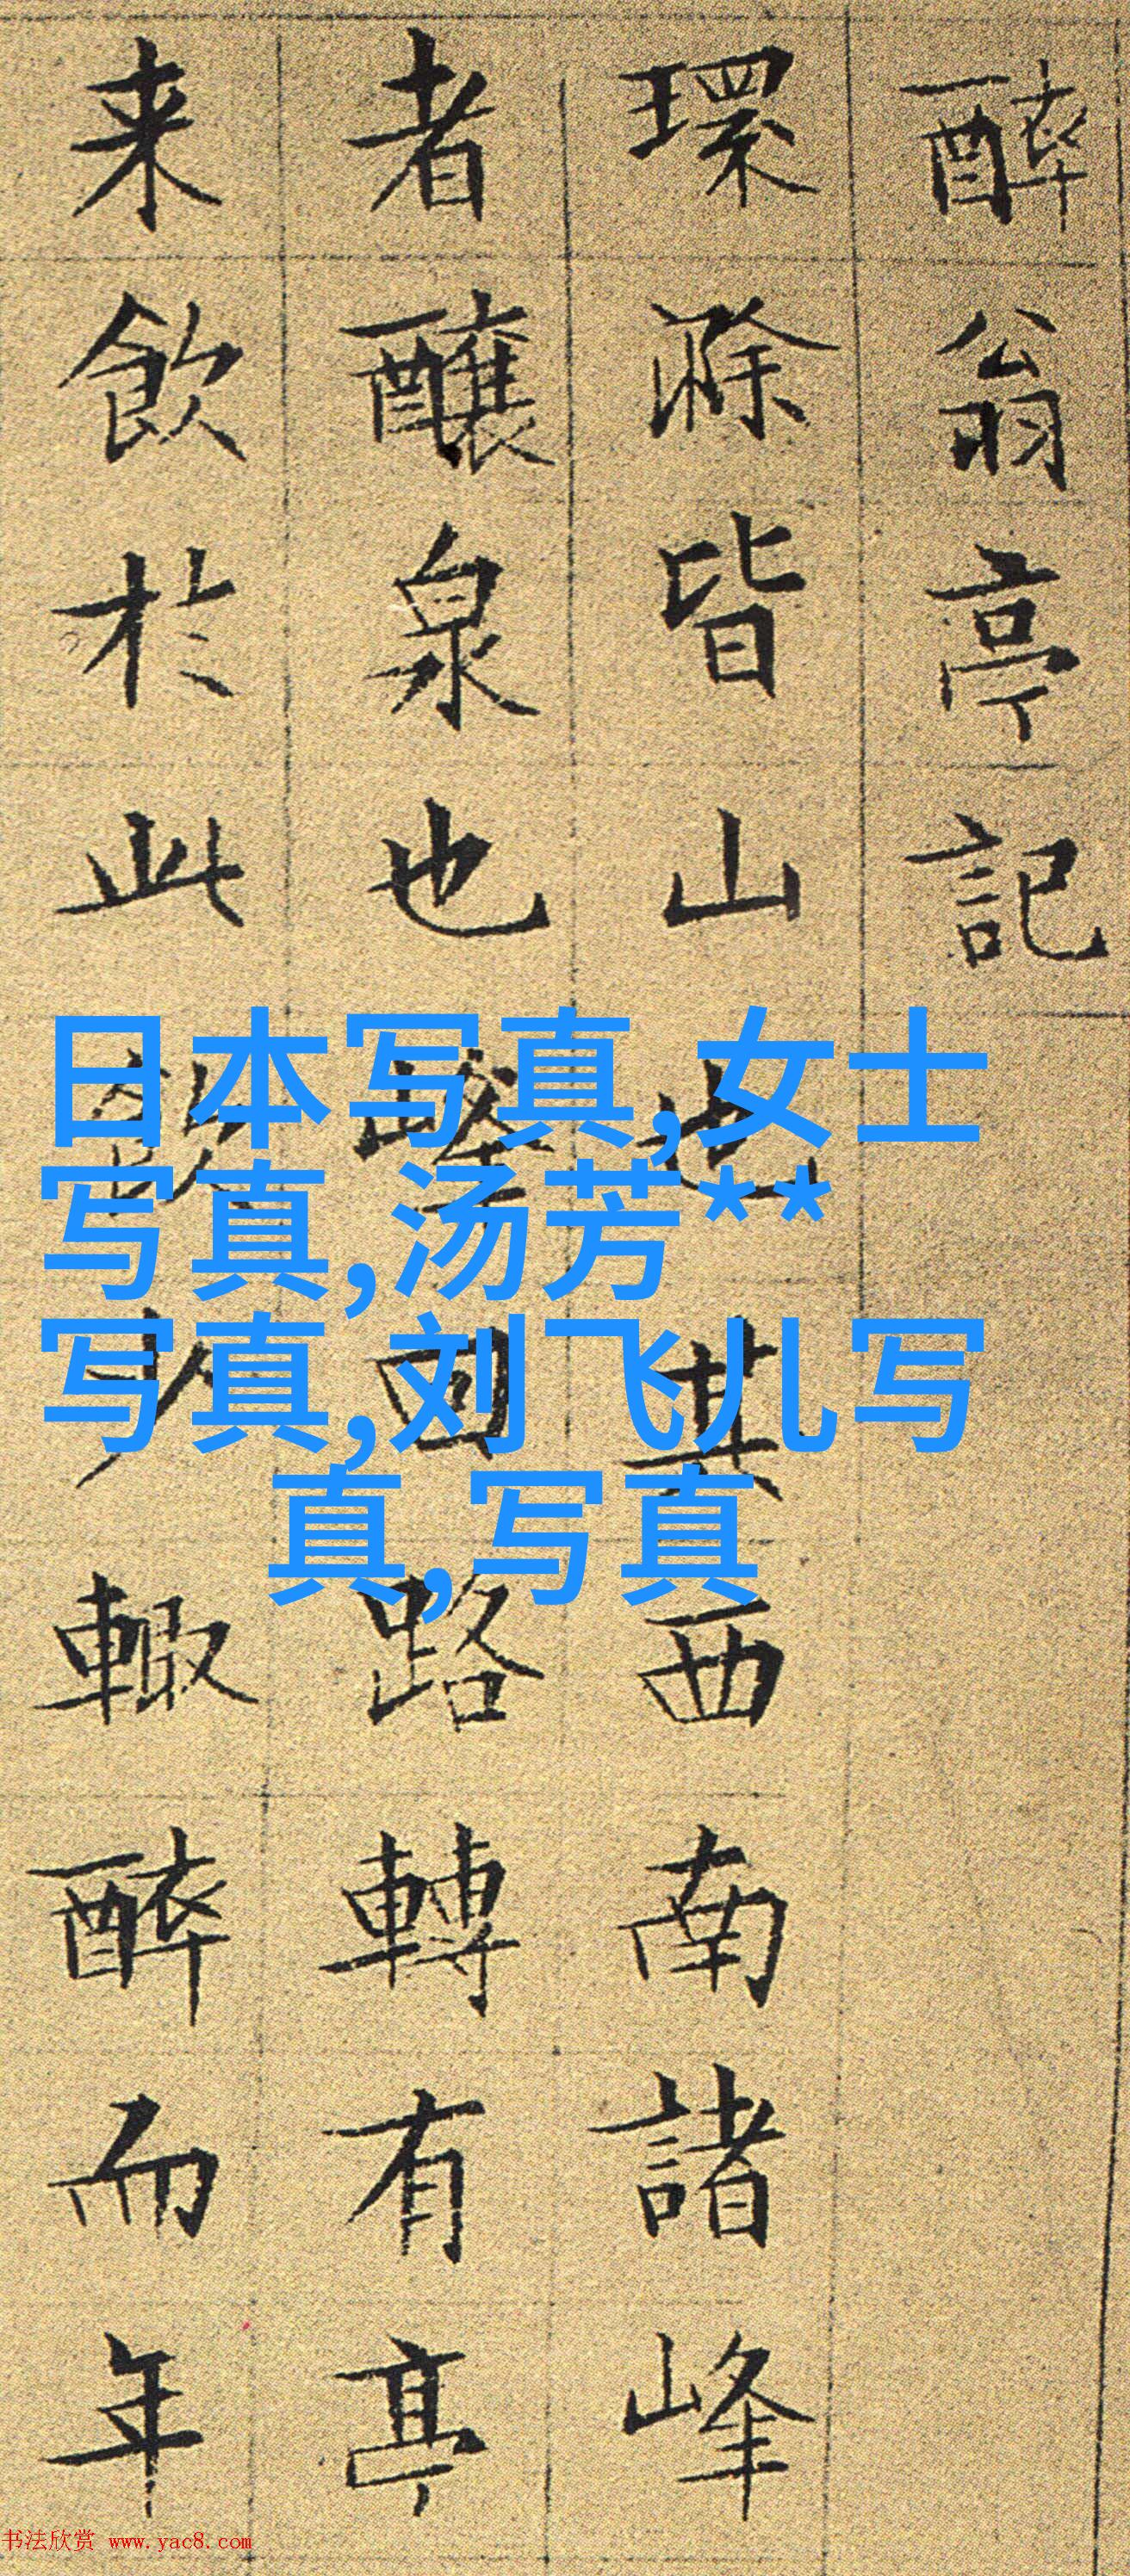 醉翁亭記
環滁皆山也其西南諸峰
者釀泉也峰回路轉有亭
来飲於此飲少輒醉而年
日本写真,女士
写真,汤芳**
写真,刘飞儿写
真,写真
书法欣赏 www.yac8.com